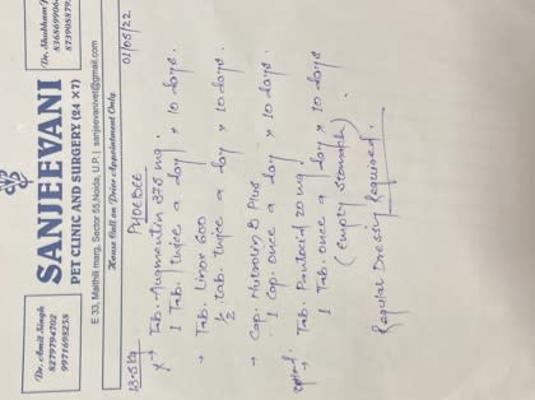 Dr. Amit Singh
8279794702
9971698258
SANJEEVANI
PET CLINIC AND SURGERY (24 X7)
Dr. Shubham
E 33, Maithili marg, Sector 55, Noida, U.P. | sanjeevanivet@gmail.com
House Call on Prior Appointment Only
PHOEBEE
01/05/22
Tab. Augmentin 375 mg.
1 Tab. twice a day x 10 days.
→ Tab. 600
1/2 tab. twice a day x 10 days.
→ Cap. Nutrolin B Plus
1 Cap. once a day x 10 days.
→ Tab. Pantocid 20 mg.
1 Tab. once a day x 10 days
(Empty stomach).
Regular Dressing Required.